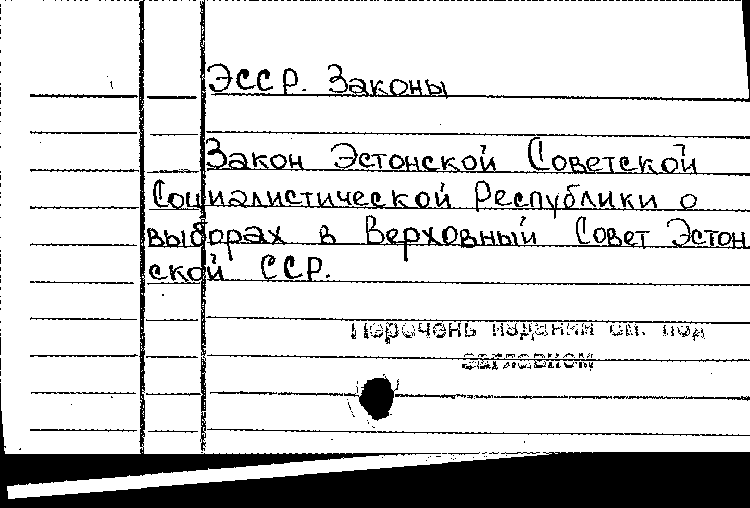 ЭССР. Законы
Закон Эстонской Советской
Социалистической Республики о
выборах в Верховный Совет Эстон
ской ССР.
Перечень издании см. под
заглавием